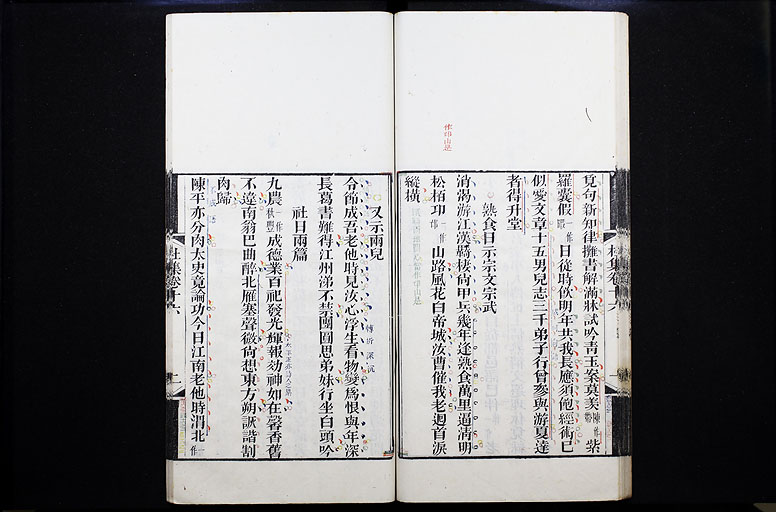 覓句新知律攤書解滿牀試吟青玉案莫羨紫
羅囊假一作暇日從時飲明年共我長應須飽經術已
似愛文章十五男兒志三千弟子行曾參與游夏達
者得升堂
熟食日示宗文宗武
消渴游江漢羈棲尚甲兵幾年逢熟食萬里逼淸明
松柏卭一作山路風花白帝城汝曹催我老迴首淚
縱橫
又示兩兒
令節成吾老他時見汝心浮生看物變爲恨與年深
長葛書難得江州涕不禁團圓思弟妹行坐白頭吟
社日兩篇
九農一作秋豐成德業百祀發光輝報効神如在馨香舊
不違南翁巴曲醉北雁塞聲微尚想東方朔詼諧割
肉歸
陳平亦分肉太史竟論功今日江南老他時渭北一作
杜集卷十六